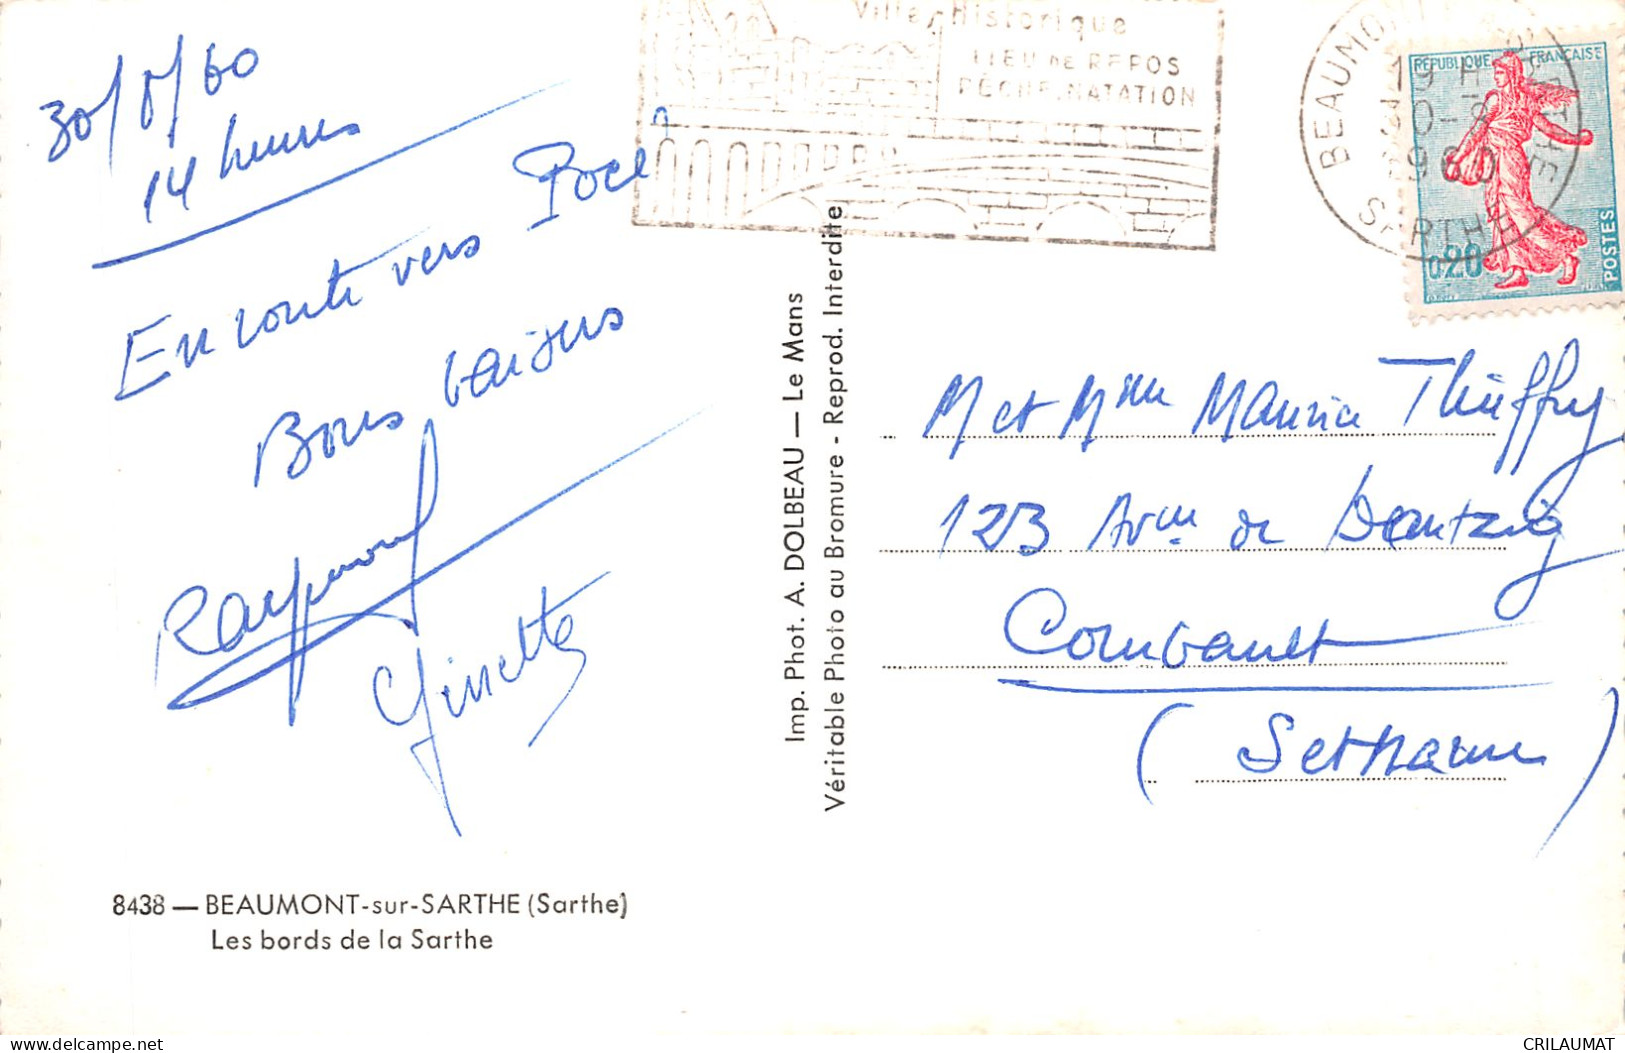 30/8/60
14 heures
En route vers Pocé
Bons baisers
Raymond
Ginette
8438 — BEAUMONT-sur-SARTHE (Sarthe)
Les bords de la Sarthe
Imp. Phot. A. DOLBEAU — Le Mans
Véritable Photo au Bromure - Reprod. Interdite
Ville Historique
LIEU DE REPOS
PÊCHE NATATION
BEAUMONT
SARTHE
19 H
30-8
1960
REPUBLIQUE FRANÇAISE
0,20
POSTES
M et Mme Maurice Thieffry
123 Avue de Dantzig
Combault
(Set Marne)
www.delcampe.net
CRILAUMAT